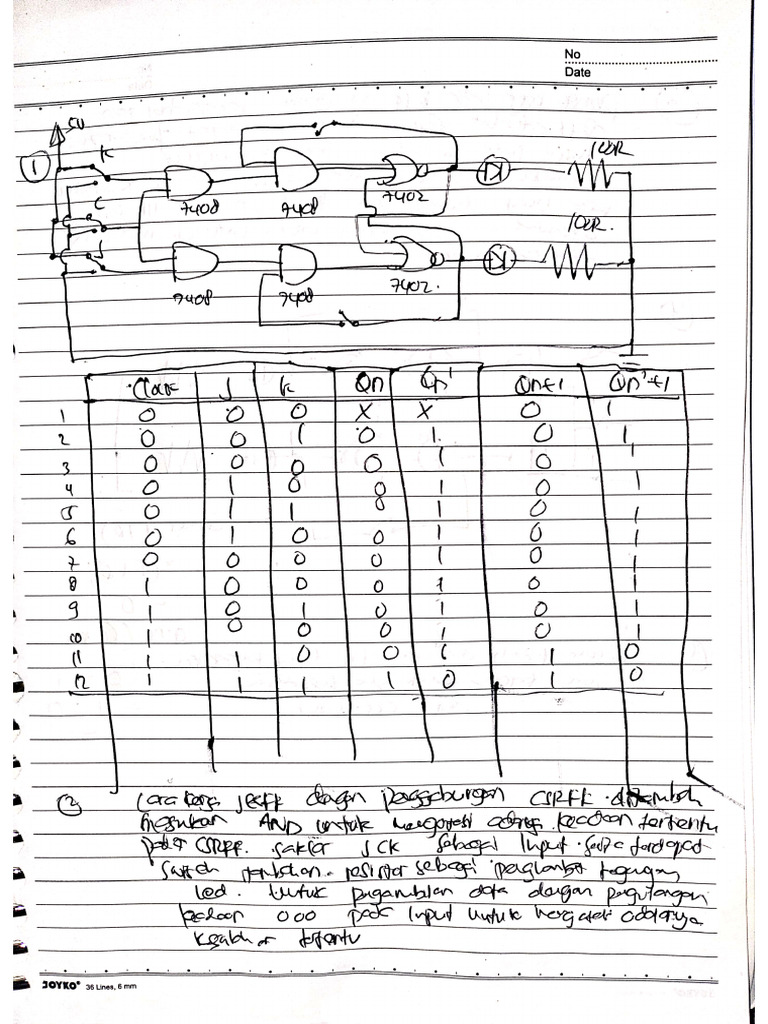 No
Date
5V
1
K
C
J
7408
7408
7402
100R
7408
7408
7402.
100R.
Clock J K Qn Qn' Qn+1 Qn'+1
1 0 0 0 X X 0 1
2 0 0 1 0 1 0 1
3 0 0 0 0 1 0 1
4 0 1 0 0 1 0 1
5 0 1 1 0 1 0 1
6 0 1 0 0 1 0 1
7 0 0 0 0 1 0 1
8 1 0 0 0 1 0 1
9 1 0 1 0 1 0 1
10 1 0 0 0 1 0 1
11 1 1 0 0 1 1 0
12 1 1 1 1 0 1 0
2 Cara kerja JKFF dengan penggabungan CSRFF
masukan AND untuk mengatasi adanya keadaan tertentu
pada CSRFF. saklar JCK sebagai Input. serta terdapat
switch tambahan. resistor sebagai penghambat tegangan
Led. Untuk pengambilan data dengan pengulangan
keadaan 000 pada Input untuk mengatasi adanya
tertentu
JOYKO 36 Lines, 6 mm